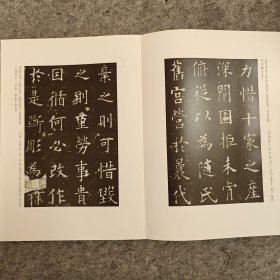 力惜十家之產
深閉固拒未肯
俯從以為隨氏
舊宮營於曩代
棄之則可惜毀
之則重勞事貴
因循何必改作
於是斲彫為樸